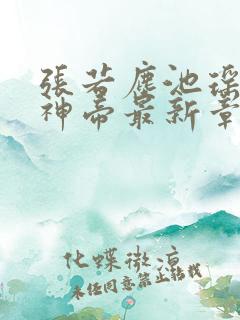 張若塵池瑤
神帝最新章
化蝶微涼
未经同意禁止转载